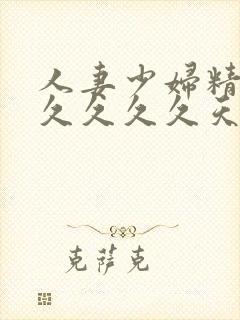 人妻少婦精
久久久久天
克萨克